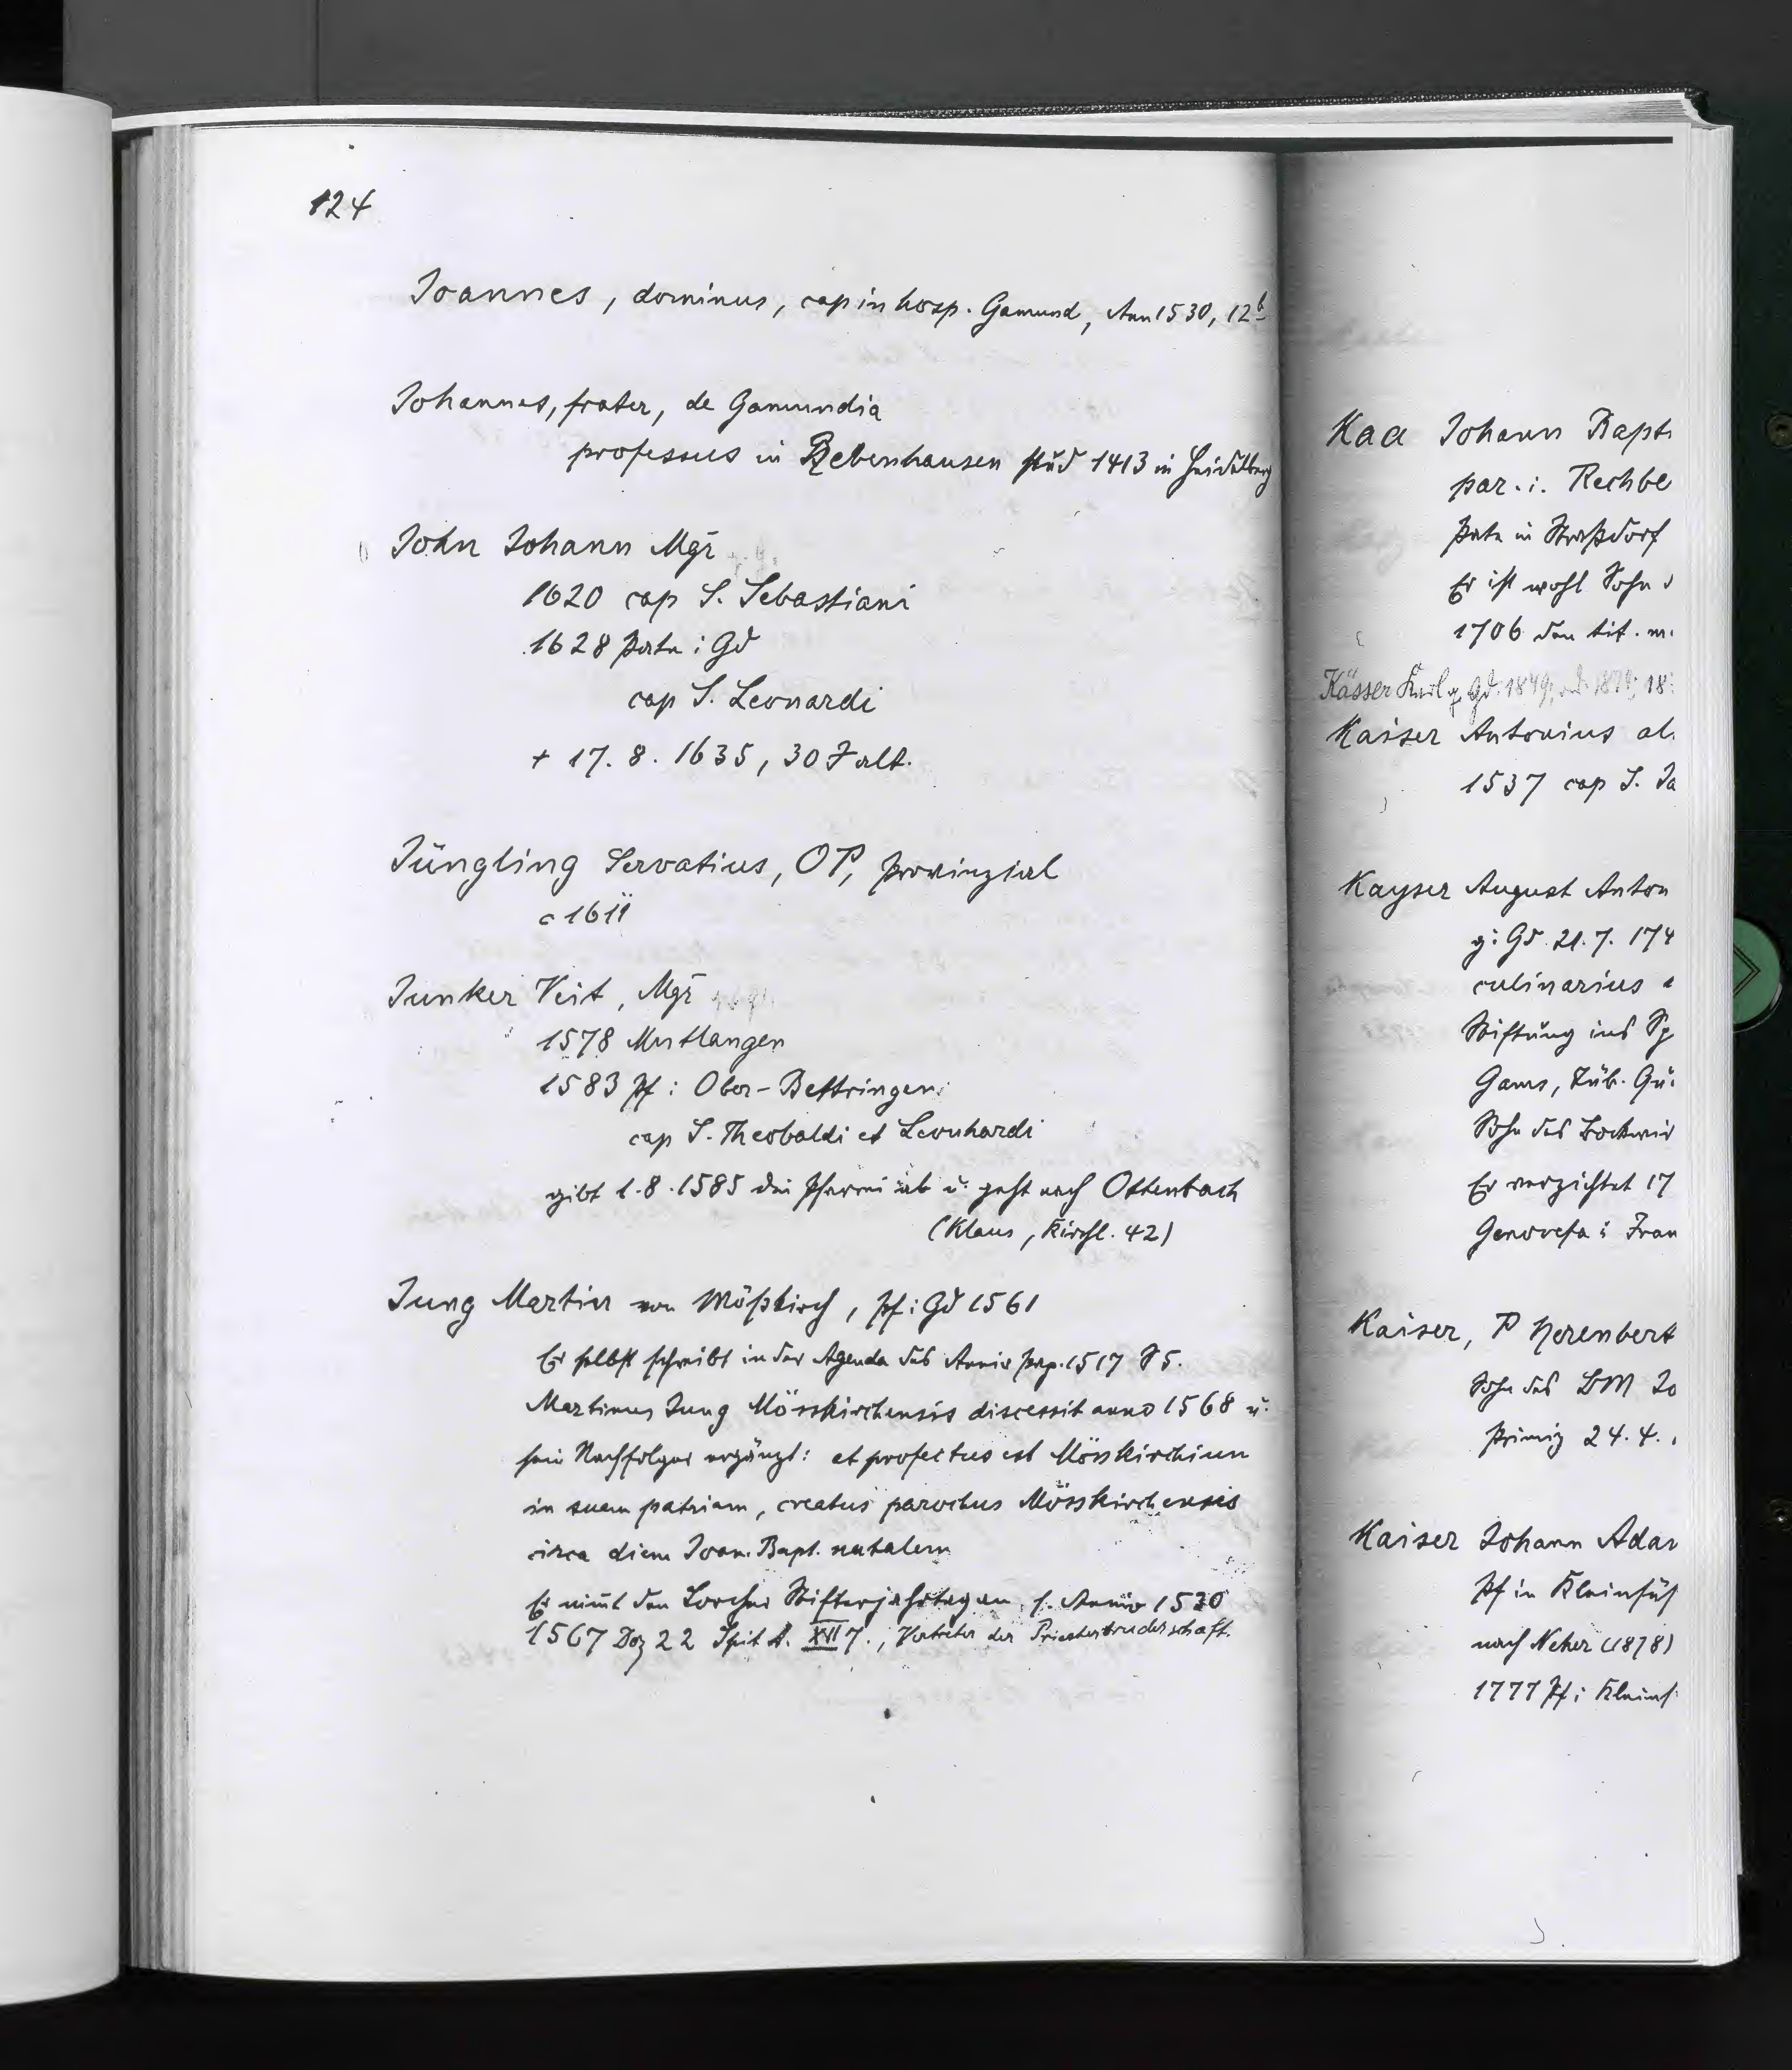 124
Joannes, dominus, cap in hosp. Gamund, Ann 1530, 12b
Johannes, frater, de Gamundia
professus in Bebenhausen stud 1413 in Heidelberg
John Johann Mgr
1620 cap S. Sebastiani
1628 Pate i Gd
cap S. Leonardi
+ 17. 8. 1635, 30 J alt.
Jüngling Servatius, OP, Provinzial
c 1611
Junker Veit, Mgr
1578 Mutlangen
1583 Pf i Ober-Bettringen
cap S. Theobaldi et Leonhardi
gibt 1.8.1585 die Pfarrei ab u. geht nach Ottenbach
(Klaus, Kirchl. 42)
Jung Martin von Mößkirch, Pf i Gd 1561
Er selbst schreibt in der Agenda des Anniv 1517 S 5.
Martinus Jung Mösskirchensis discessit anno 1568 u.
sein Nachfolger ergänzt: et profectus est Mösskirchium
in suam patriam, creatus parochus Mösskirchensis
circa diem Joan. Bapt. natalem
Er nimmt den Lorcher Stifterjahrtag an, s. Anniv 1530
1567 Dez 22 Spit A. XVI 7., Vertreter der Priesterbruderschaft.
Kaa Johann Bapt
par. i. Rechbe
Pate in Straßdorf
Er ist wohl Sohn
1706 den tit. m.
Kässer Karl g Gd. 1849, 18
Kaiser Antonius al.
1537 cap S. Ja
Kayser August Anton
g i Gd 21. 7. 174
culinarius
Stiftung ins Sp
Gams, Tüb. Qu.
Sohn des Bockwir
Er verzichtet 17
Genovefa i Fran
Kaiser, P Nerenbert
Sohn des BM Jo
Primiz 24. 4.
Kaiser Johann Adam
Pf in Kleinsüß
nach Neher (1878)
1777 Pf i Kleins